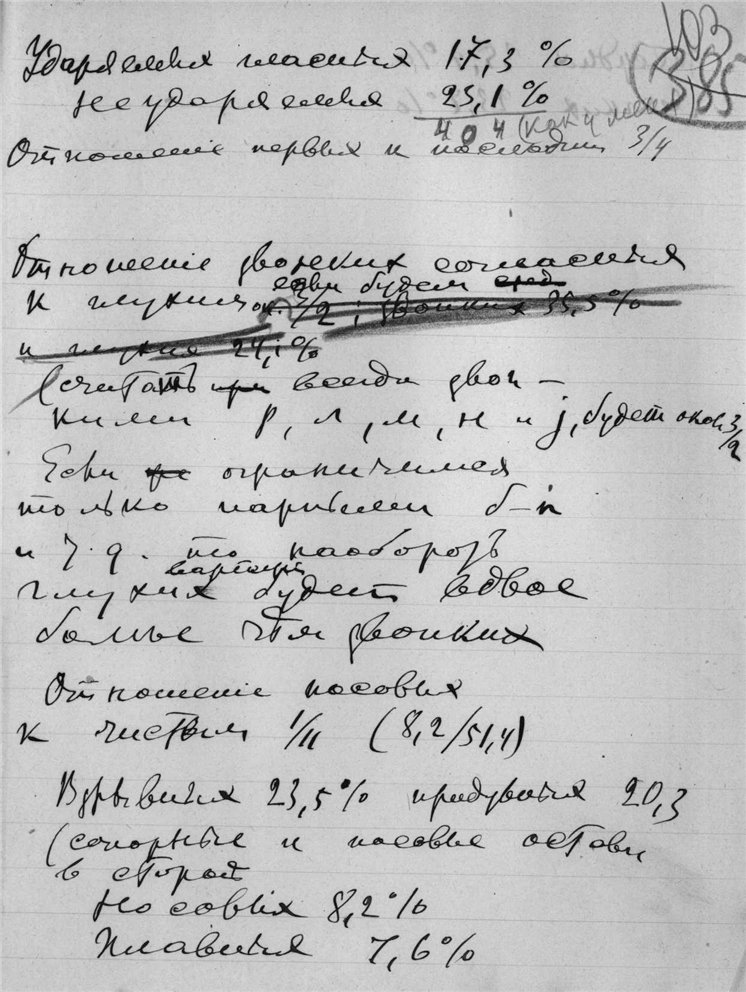 103
(385
Ударяемых гласных 17,3 %
Неударяемых 23,1 %
404 (как у меня)
Отношение первых к последним 3/4
Отношение звонких согласных
если будем
к глухим ок. 3/2; звонких 35,5 %
и глухих 24,1 %
(считать всегда звон-
кими р, л, м, н и j, будет около 3/2
Если ограничимся
только парными б-п
и т.д. то наоборот
глухих будет вдвое
больше чем звонких
Отношение носовых
к чистым 1/11 (8,2/51,4)
Взрывных 23,5 % придувных 20,3
(сонорные и носовые оставя
в стороне
Носовых 8,2 %
Плавных 7,6 %